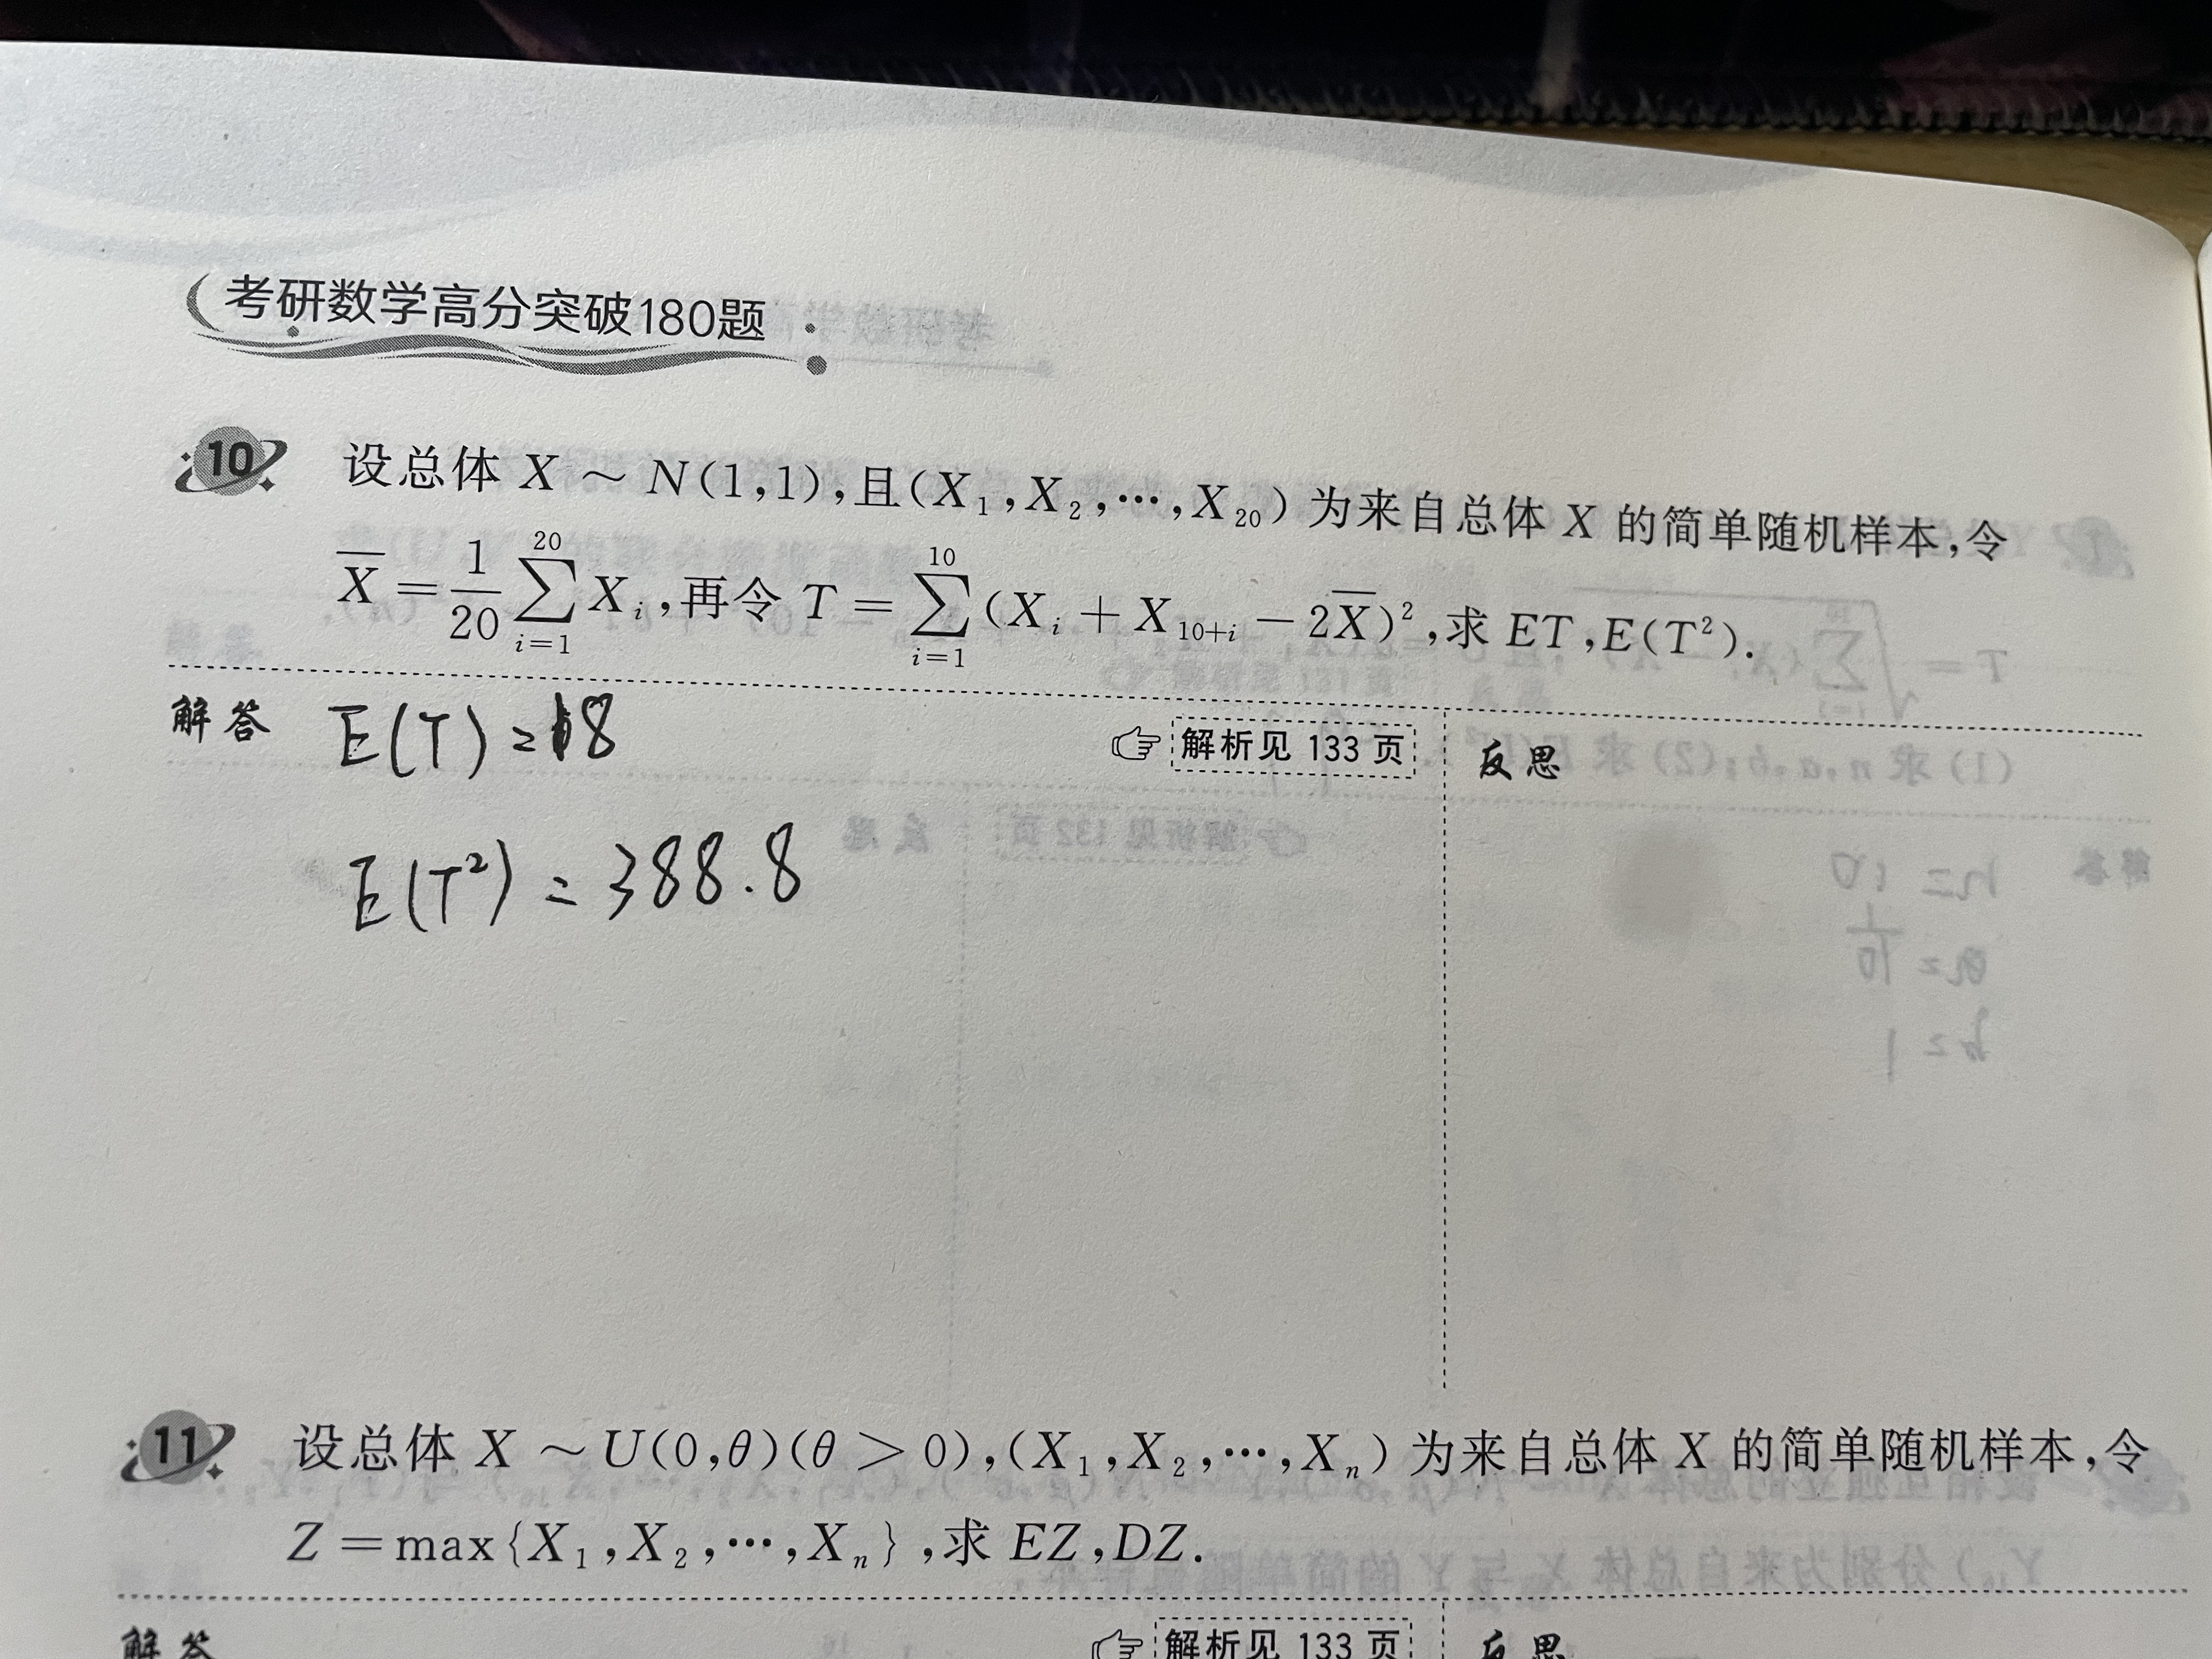 考研数学高分突破180题
10 设总体 X ~ N(1,1),且(X₁,X₂,⋯,X₂₀) 为来自总体 X 的简单随机样本,令
X̄ = 1/20 ∑_{i=1}^{20} X_i,再令 T = ∑_{i=1}^{10} (X_i + X_{10+i} − 2X̄)²,求 ET,E(T²).
解答 E(T) = 18
解析见 133 页 反思
E(T²) = 388.8
11 设总体 X ~ U(0,θ)(θ > 0),(X₁,X₂,⋯,Xₙ) 为来自总体 X 的简单随机样本,令
Z = max{X₁,X₂,⋯,Xₙ},求 EZ,DZ.
解答 解析见 133 页 反思